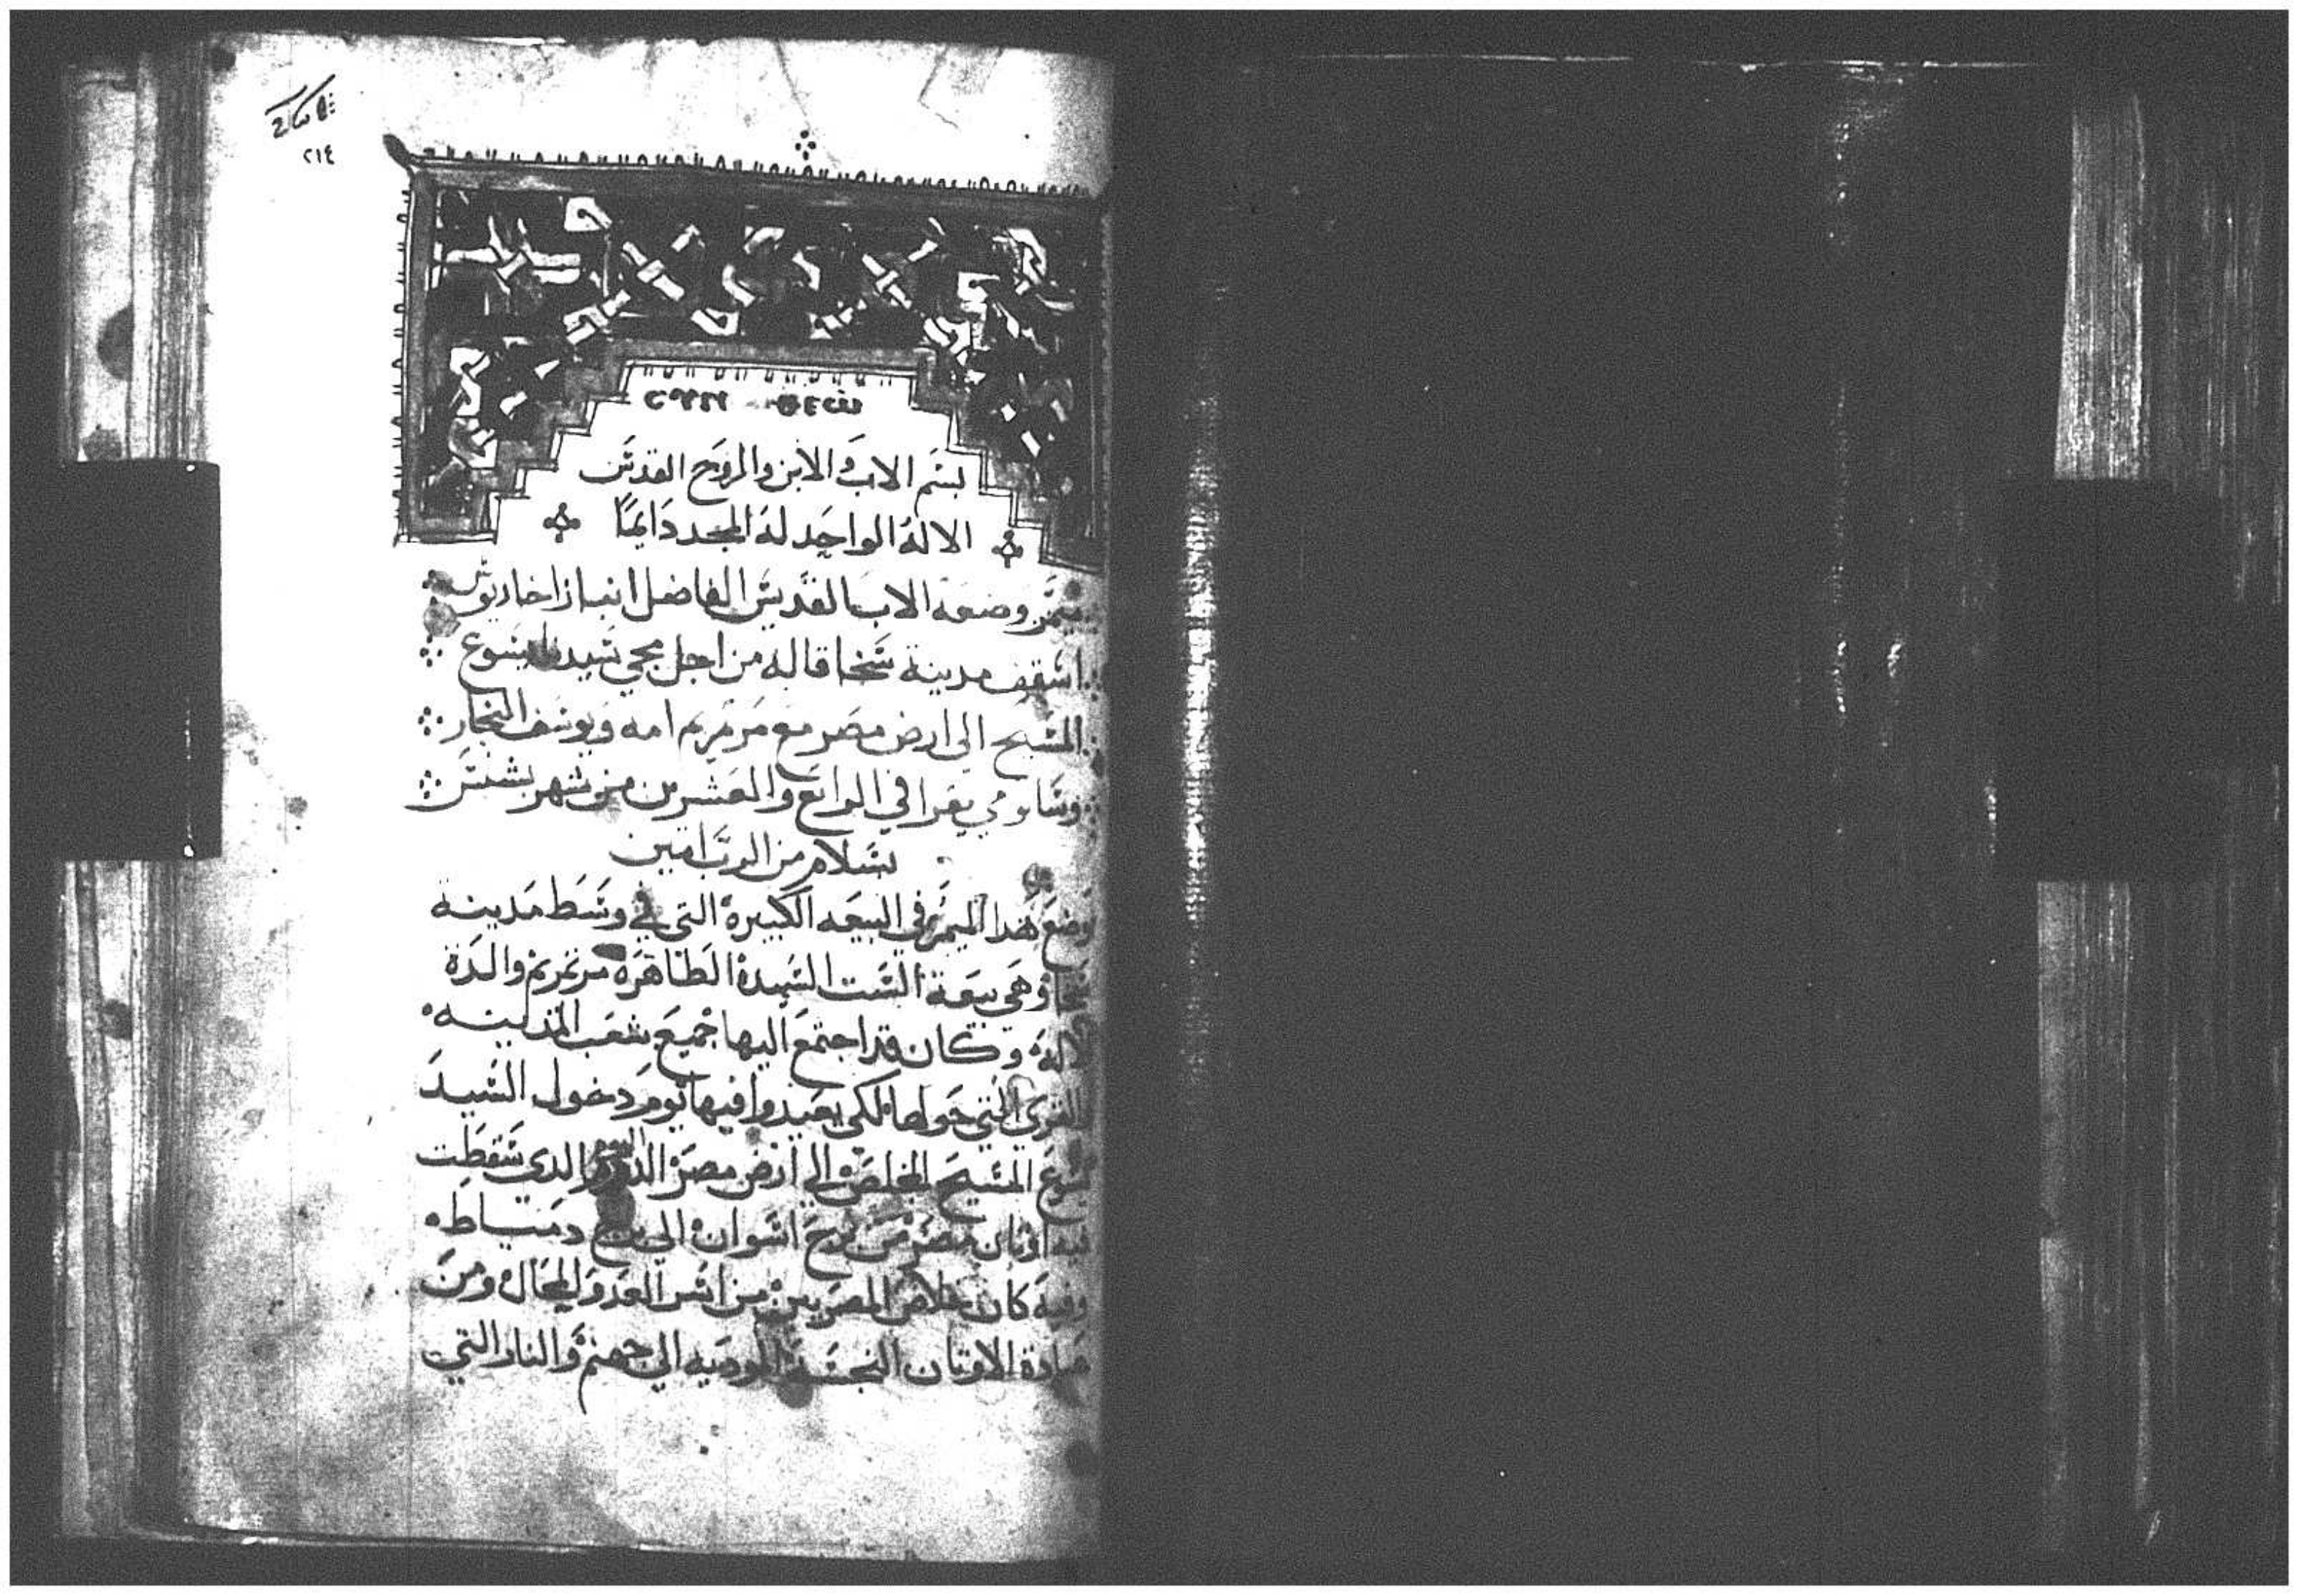 ٢١٤
بسم الاب والابن والروح القدس
الاله الواحد له المجد دايمًا
ميمر وضعه الاب القديس الفاضل انبا زاخارياوس
اسقف مدينة سخا قاله من اجل مجي سيدنا يسوع
المسيح الي ارض مصر مع مرتمريم امه ويوسف النجار
وسالومي يقرا في الرابع والعشرين من شهر بشنس
بسلام من الرب امين
وضع هدا الميمر في البيعه الكبيرة التي في وسط مدينة
سخا وهي بيعة الست السيدة الطاهرة مرتمريم والدة
الاله وكان قد اجتمع اليها جميع شعب المدينه
والقري التي حولها لكي يعيدوا فيها يوم دخول السيد
يسوع المسيح المخلص الي ارض مصر اليوم الدي سقطت
فيه اوثان مصر من برج اسوان الي برج دمياط
وفيه كان خلاص المصريين من اسر العدو المحال ومن
عبادة الاوتان النجسة الموديه الي جهنم والنار التي